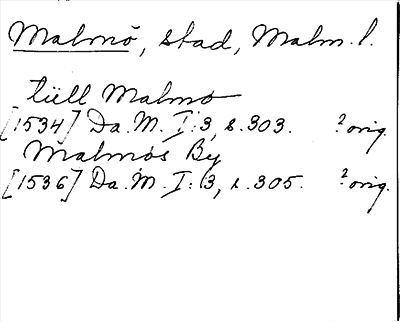 Malmö, stad, Malm. l.
tüll Malmo
[1534] Da. M. I:3, s. 303. ? orig.
Malmös By
[1536] Da. M. I:3, s. 305. ? orig.